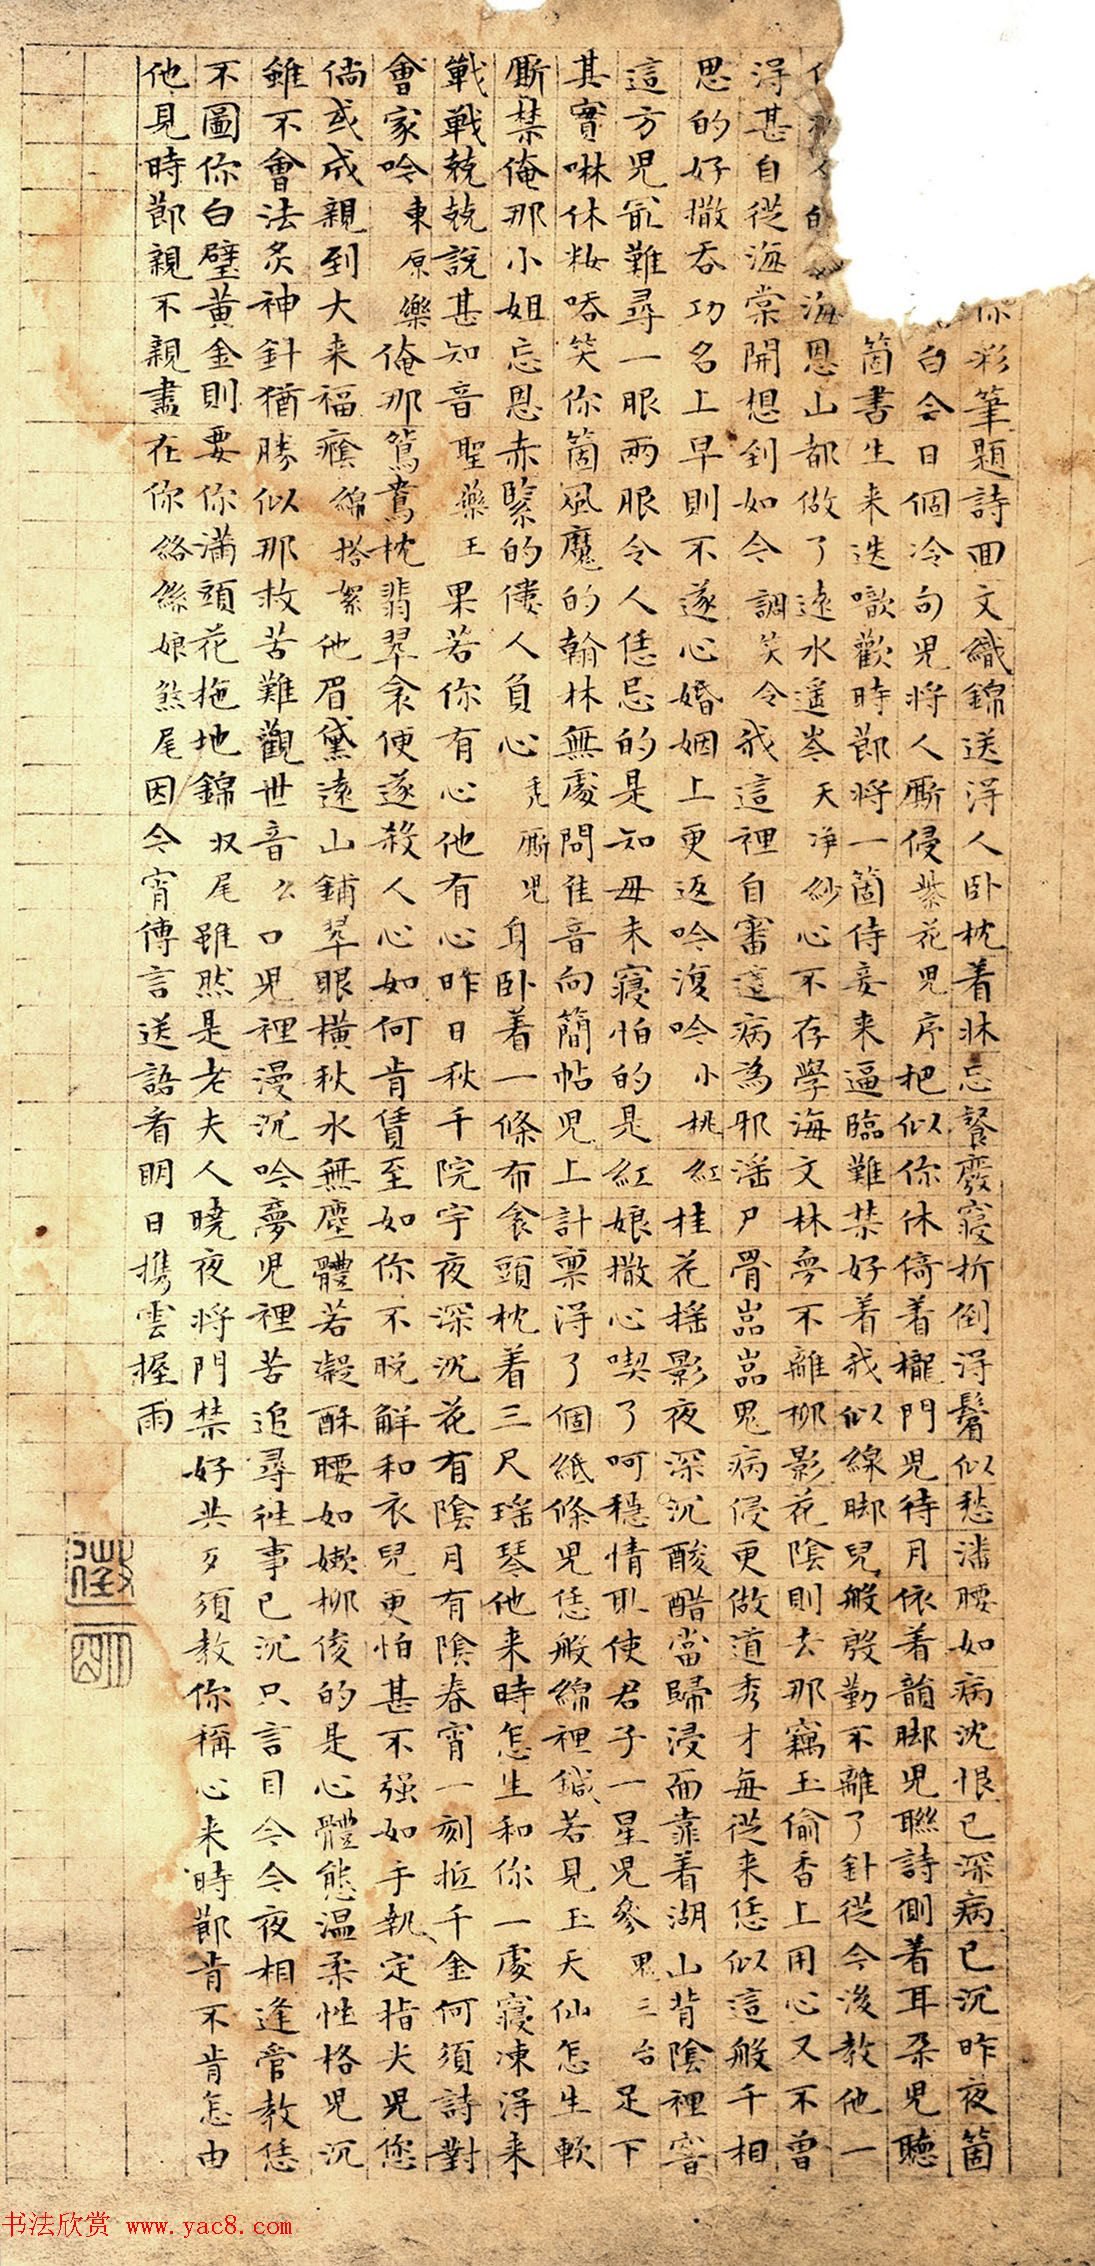 你彩筆題詩回文織錦送淂人卧枕着牀忘餐廢寢折倒淂鬢似愁潘腰如病沈恨已深病已沉昨夜箇
白今日個冷句兒將人厮侵紫花兒序把似你休倚着櫳門兒待月依着韻脚兒聯詩側着耳朶兒聽
箇書生来迭噷歡時節將一箇侍妾来逼臨難禁好着我似線脚兒般殷勤不離了針從今後教他一
海恩山都做了遠水遥岑天净紗心不存學海文林夢不離柳影花陰則去那竊玉偷香上用心又不曾
淂甚自從海棠開想到如今調笑令我這裡自審這病為邪滛尸骨嵓嵓鬼病侵更做道秀才每從来恁似這般千相
思的好撒吞功名上早則不遂心婚姻上更返吟復吟小桃紅桂花摇影夜深沉酸醋當歸浸面靠着湖山背陰裡窨
這方兒㝡難尋一眼兩眼令人恁忌的是知母未寢怕的是紅娘撒心喫了呵穩情取使君子一星兒參鬼三台足下
其實啉休粧唔笑你箇風魔的翰林無處問隹音向簡帖兒上計稟淂了個紙條兒恁般綿裡鍼若見玉天仙怎生軟
厮禁俺那小姐忘恩赤緊的僂人負心禿厮兒身卧着一條布衾頭枕着三尺瑶琴他来時怎生和你一處寢凍淂来
戰戰兢兢說甚知音聖藥王果若你有心他有心昨日秋千院宇夜深沉花有陰月有陰春宵一刻抵千金何須詩對
會家吟東原樂俺那鴛鴦枕翡翠衾便遂殺人心如何肯賃至如你不脫解和衣兒更怕甚不强如手執定指尖兒您
倘或成親到大来福癊綿搭絮他眉黛遠山鋪翠眼横秋水無塵體若凝酥腰如嫰柳俊的是心體態温柔性格兒沉
雖不會法炙神針猶勝似那救苦難觀世音么口兒裡漫沉吟夢兒裡苦追尋徃事已沉只言目今今夜相逢管教恁
不圖你白璧黄金則要你滿頭花拖地錦収尾雖然是老夫人曉夜將門禁好共歹須教你稱心来時節肯不肯怎由
他見時節親不親盡在你絡絲娘煞尾因今宵傳言送語看明日携雲握雨
书法欣赏 www.yac8.com